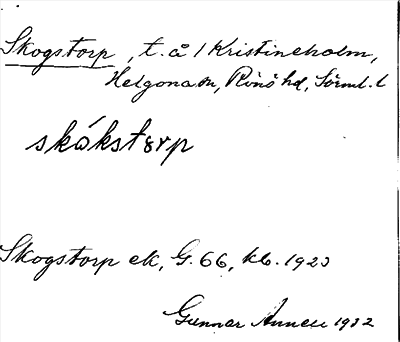 Skogstorp, t. å 1 Kristineholm,
Helgona sn, Rönö hd, Sörml. l
skókstɵrp
Skogstorp ek, G. 66, kb. 1923
Gunnar 1932